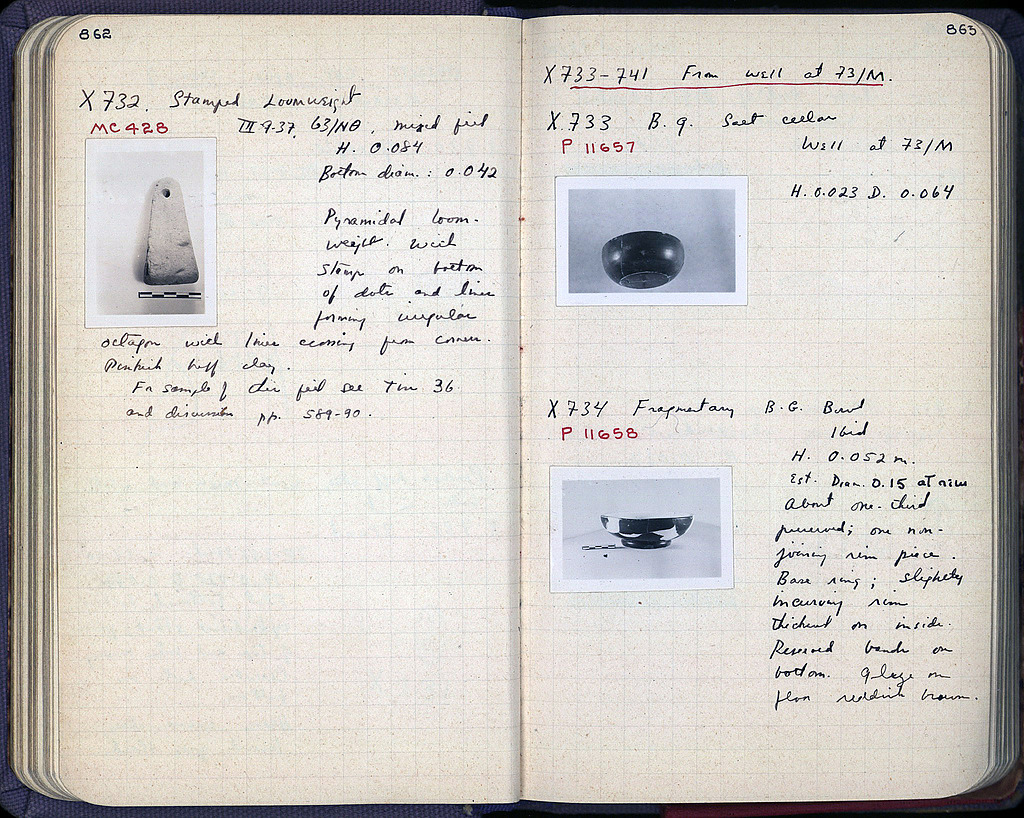 862
X 732. Stamped Loomweight
MC 428
III 9.37. 63/NΘ, mixed fill
H. 0.084
Bottom diam.: 0.042
Pyramidal loom-
weight with
stamp on bottom
of dots and lines
forming irregular
octagon with lines crossing from corners.
Pinkish buff clay.
For sample of this fill see Tin 36
and discussion pp. 589-90.
863
X 733-741 From well at 73/M.
X 733 B.G. Salt cellar
P 11657
Well at 73/M
H. 0.023 D. 0.064
X 734 Fragmentary B.G. Bowl
P 11658
Ibid
H. 0.052 m.
Est. Diam. 0.15 at rim
About one-third
preserved; one non-
joining rim piece.
Base ring; slightly
incurving rim
thickened on inside.
Reserved bands on
bottom. Glaze on
floor reddish brown.